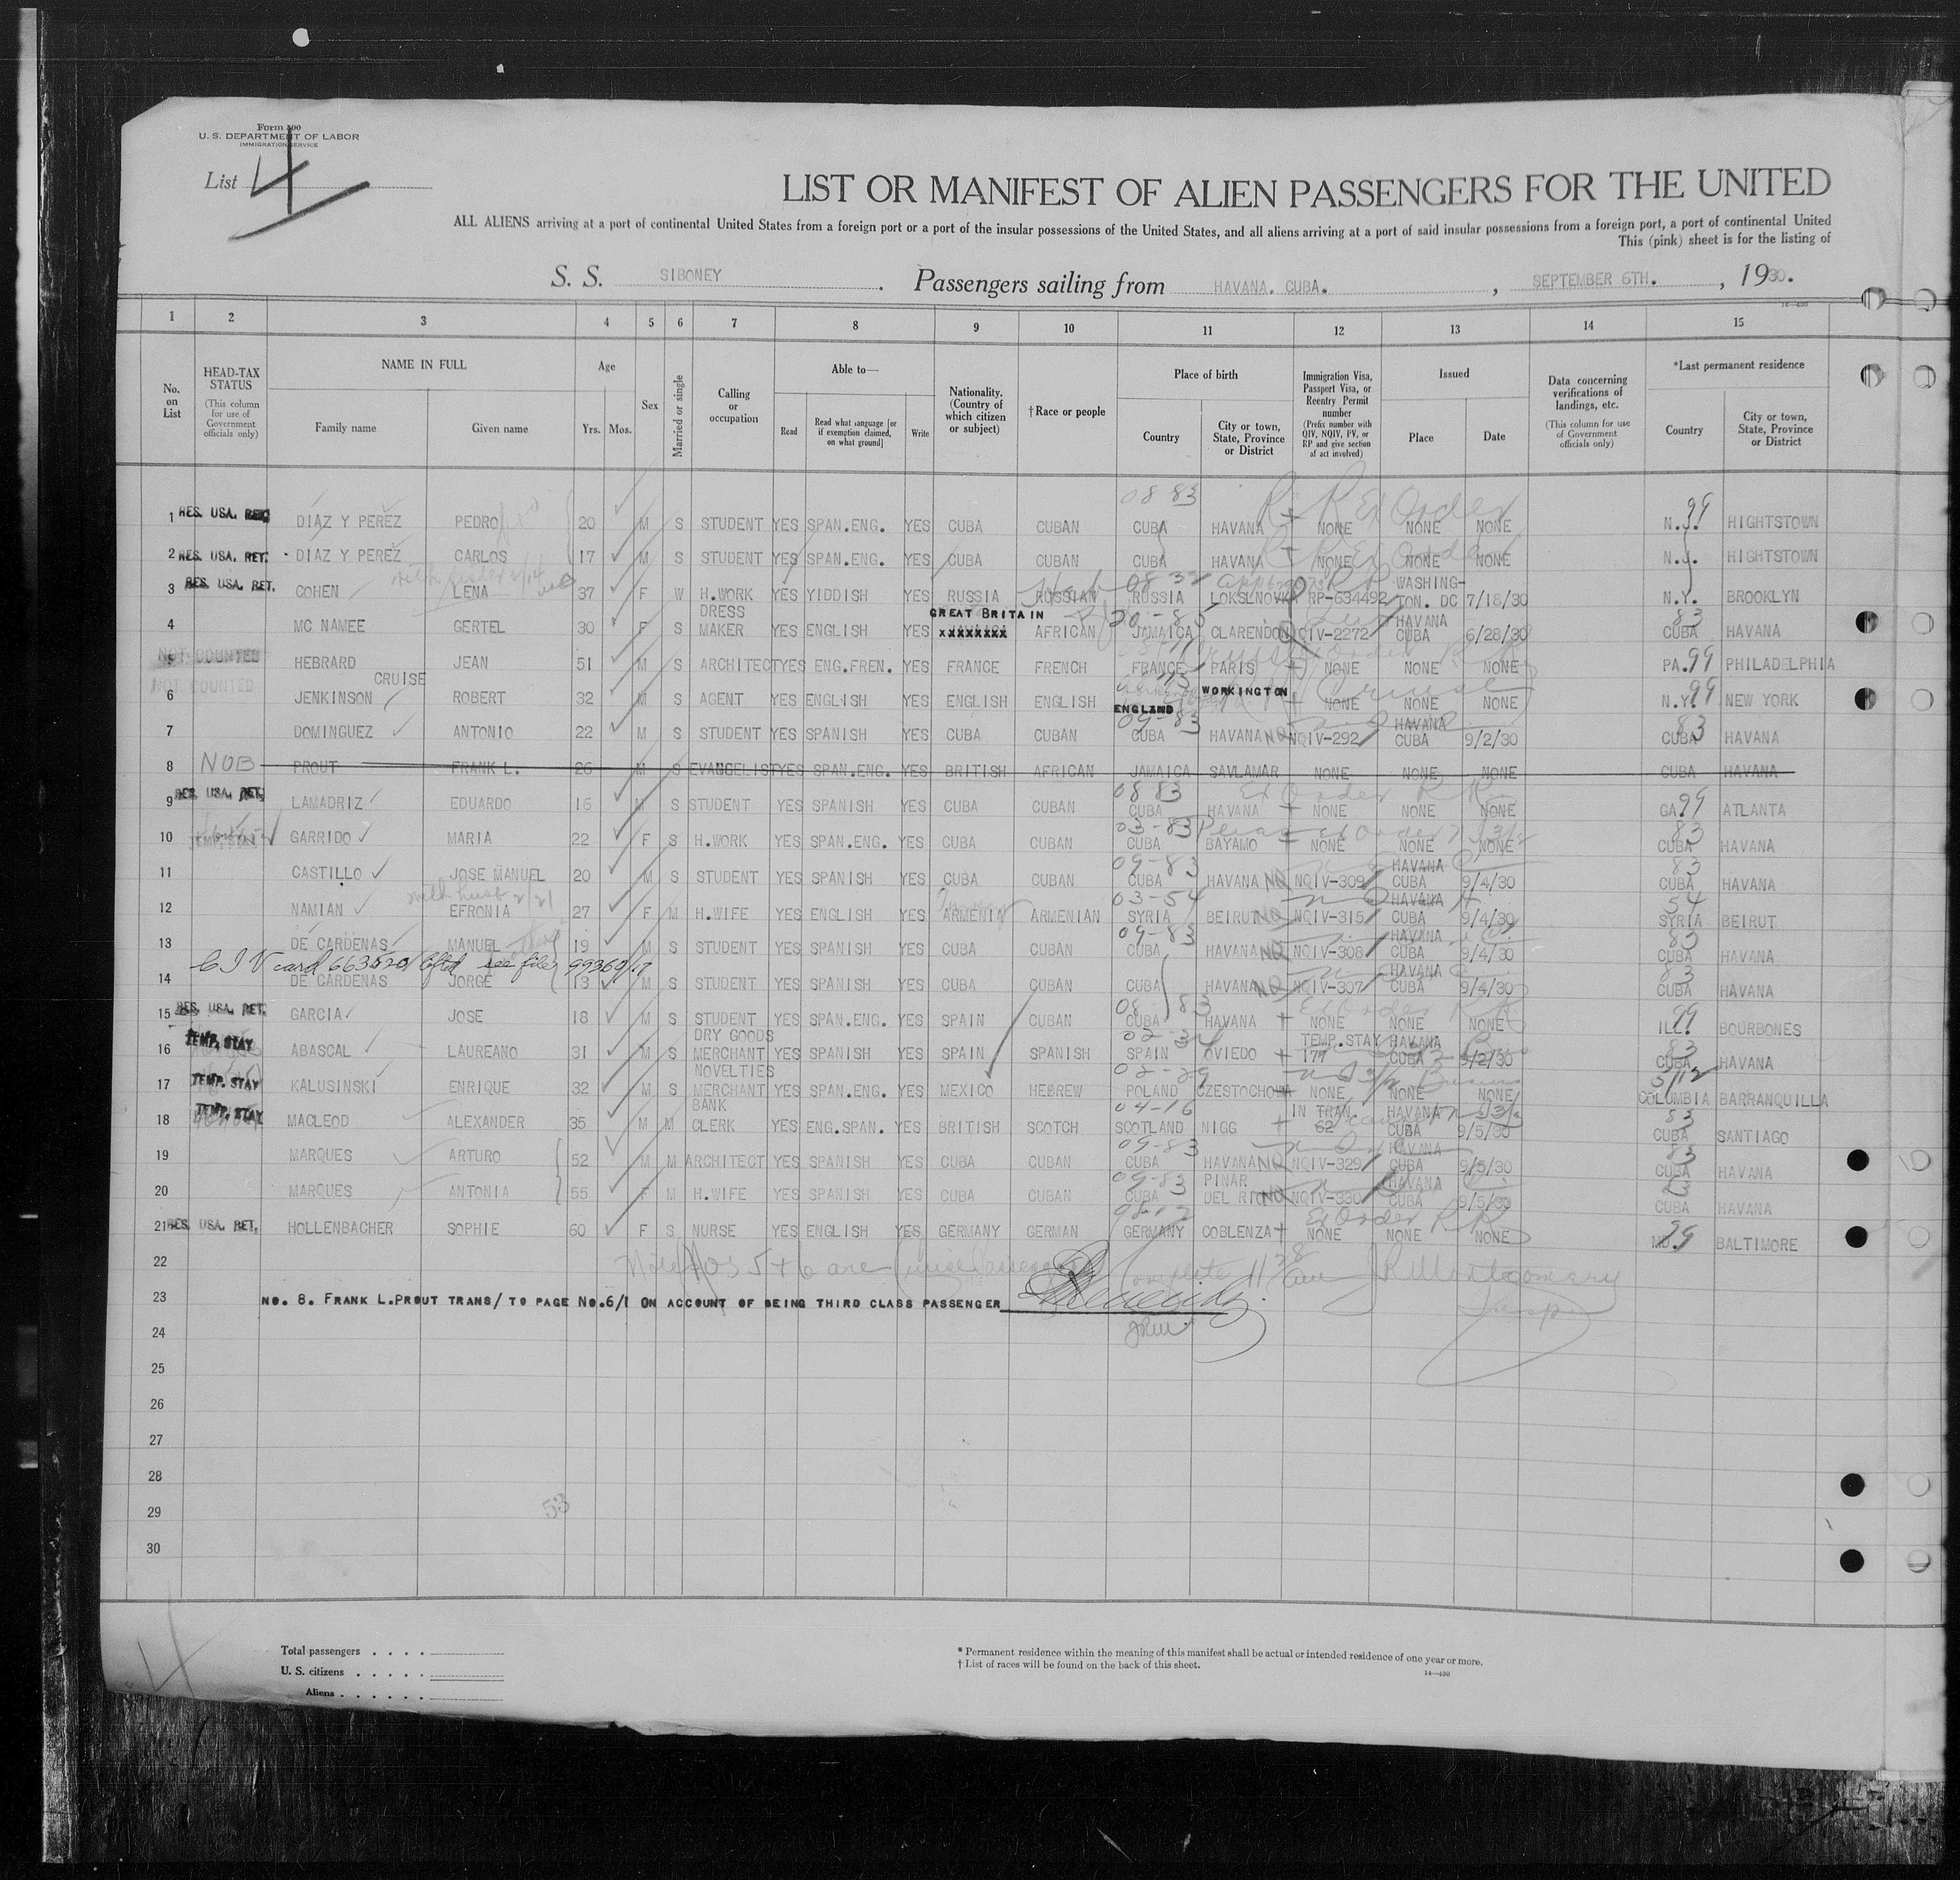 Form 500
U. S. DEPARTMENT OF LABOR
IMMIGRATION SERVICE
List 4
LIST OR MANIFEST OF ALIEN PASSENGERS FOR THE UNITED
ALL ALIENS arriving at a port of continental United States from a foreign port or a port of the insular possessions of the United States, and all aliens arriving at a port of said insular possessions from a foreign port, a port of continental United
This (pink) sheet is for the listing of
S. S. SIBONEY. Passengers sailing from HAVANA. CUBA. , SEPTEMBER 6TH. , 1930.
1 2 3 4 5 6 7 8 9 10 11 12 13 14 15
No. on List
HEAD-TAX STATUS (This column for use of Government officials only)
NAME IN FULL Family name Given name
Age Yrs. Mos.
Sex
Married or single
Calling or occupation
Able to— Read Read what language [or if exemption claimed, on what ground] Write
Nationality. (Country of which citizen or subject)
†Race or people
Place of birth Country City or town, State, Province or District
Immigration Visa, Passport Visa, or Reentry Permit number (Prefix number with QIV, NQIV, PV, or RP and give section of act involved)
Issued Place Date
Data concerning verifications of landings, etc. (This column for use of Government officials only)
*Last permanent residence Country City or town, State, Province or District
08 83
1 RES. USA. RET. DIAZ Y PEREZ PEDRO 20 M S STUDENT YES SPAN.ENG. YES CUBA CUBAN CUBA HAVANA + NONE NONE NONE N.J. 99 HIGHTSTOWN
R R Ex Order
2 RES. USA. RET. DIAZ Y PEREZ CARLOS 17 M S STUDENT YES SPAN.ENG. YES CUBA CUBAN CUBA HAVANA + NONE NONE NONE N.J. HIGHTSTOWN
3 RES. USA. RET. COHEN LENA 37 F W H.WORK YES YIDDISH YES RUSSIA RUSSIAN RUSSIA LOKSLNOVK RP-634492 WASHINGTON. DC 7/18/30 N.Y. BROOKLYN
4 MC NAMEE GERTEL 30 F S DRESS MAKER YES ENGLISH YES GREAT BRITAIN xxxxxxxx AFRICAN JAMAICA CLARENDON QIV-2272 HAVANA CUBA 6/28/30 83 CUBA HAVANA
5 NOT COUNTED HEBRARD JEAN 51 M S ARCHITECT YES ENG.FREN. YES FRANCE FRENCH FRANCE PARIS + NONE NONE NONE PA. 99 PHILADELPHIA
NOT COUNTED CRUISE
6 JENKINSON ROBERT 32 M S AGENT YES ENGLISH YES ENGLISH ENGLISH ENGLAND WORKINGTON + NONE NONE NONE N.Y. 99 NEW YORK
09-83
7 DOMINGUEZ ANTONIO 22 M S STUDENT YES SPANISH YES CUBA CUBAN CUBA HAVANA NQIV-292 HAVANA CUBA 9/2/30 83 CUBA HAVANA
8 NOB PROUT FRANK L. 26 M S EVANGELIST YES SPAN.ENG. YES BRITISH AFRICAN JAMAICA SAVLAMAR NONE NONE NONE CUBA HAVANA
08 83
9 RES. USA. RET. LAMADRIZ EDUARDO 16 M S STUDENT YES SPANISH YES CUBA CUBAN CUBA HAVANA + NONE NONE NONE GA 99 ATLANTA
03-83
10 GARRIDO MARIA 22 F S H.WORK YES SPAN.ENG. YES CUBA CUBAN CUBA BAYAMO NONE NONE NONE 83 CUBA HAVANA
09-83
11 CASTILLO JOSE MANUEL 20 M S STUDENT YES SPANISH YES CUBA CUBAN CUBA HAVANA NQIV-309 HAVANA CUBA 9/4/30 83 CUBA HAVANA
03-54
12 NAMIAN EFRONIA 27 F M H.WIFE YES ENGLISH YES ARMENIA ARMENIAN SYRIA BEIRUT NQIV-315 HAVANA CUBA 9/4/30 54 SYRIA BEIRUT
09-83
13 DE CARDENAS MANUEL 19 M S STUDENT YES SPANISH YES CUBA CUBAN CUBA HAVANA NQIV-308 HAVANA CUBA 9/4/30 83 CUBA HAVANA
card 663520 lifted see file 99360/17
14 DE CARDENAS JORGE 13 M S STUDENT YES SPANISH YES CUBA CUBAN CUBA HAVANA NQIV-307 HAVANA CUBA 9/4/30 83 CUBA HAVANA
08-83
15 RES. USA. RET. GARCIA JOSE 18 M S STUDENT YES SPAN.ENG. YES SPAIN CUBAN CUBA HAVANA + NONE NONE NONE ILL 99 BOURBONES
16 TEMP. STAY ABASCAL LAUREANO 31 M S DRY GOODS MERCHANT YES SPANISH YES SPAIN SPANISH SPAIN OVIEDO + TEMP.STAY 177 HAVANA CUBA 9/2/30 83 CUBA HAVANA
02-29
17 TEMP. STAY KALUSINSKI ENRIQUE 32 M S NOVELTIES MERCHANT YES SPAN.ENG. YES MEXICO HEBREW POLAND CZESTOCHOWA NONE NONE NONE COLUMBIA BARRANQUILLA
04-16
18 TEMP. STAY MACLEOD ALEXANDER 35 M M BANK CLERK YES ENG.SPAN. YES BRITISH SCOTCH SCOTLAND NIGG + IN TRAN. 62 HAVANA CUBA 9/5/30 83 CUBA SANTIAGO
09-83
19 MARQUES ARTURO 52 M M ARCHITECT YES SPANISH YES CUBA CUBAN CUBA HAVANA NQIV-329 HAVANA CUBA 9/5/30 83 CUBA HAVANA
09-83
20 MARQUES ANTONIA 55 F M H.WIFE YES SPANISH YES CUBA CUBAN CUBA PINAR DEL RIO NQIV-330 HAVANA CUBA 9/5/30 83 CUBA HAVANA
21 RES. USA. RET. HOLLENBACHER SOPHIE 60 F S NURSE YES ENGLISH YES GERMANY GERMAN GERMANY COBLENZA + NONE NONE NONE MD 99 BALTIMORE
Ex Order R R
22 Note Nos 5 + 6 are Cruise passengers Complete J R Montgomery
23 NO. 8. FRANK L.PROUT TRANS/ TO PAGE NO.6/1 ON ACCOUNT OF BEING THIRD CLASS PASSENGER
24 JRM
25
26
27
28
29 53
30
Total passengers . . . .
U. S. citizens . . . . .
Aliens . . . . . .
* Permanent residence within the meaning of this manifest shall be actual or intended residence of one year or more.
† List of races will be found on the back of this sheet.
14—430